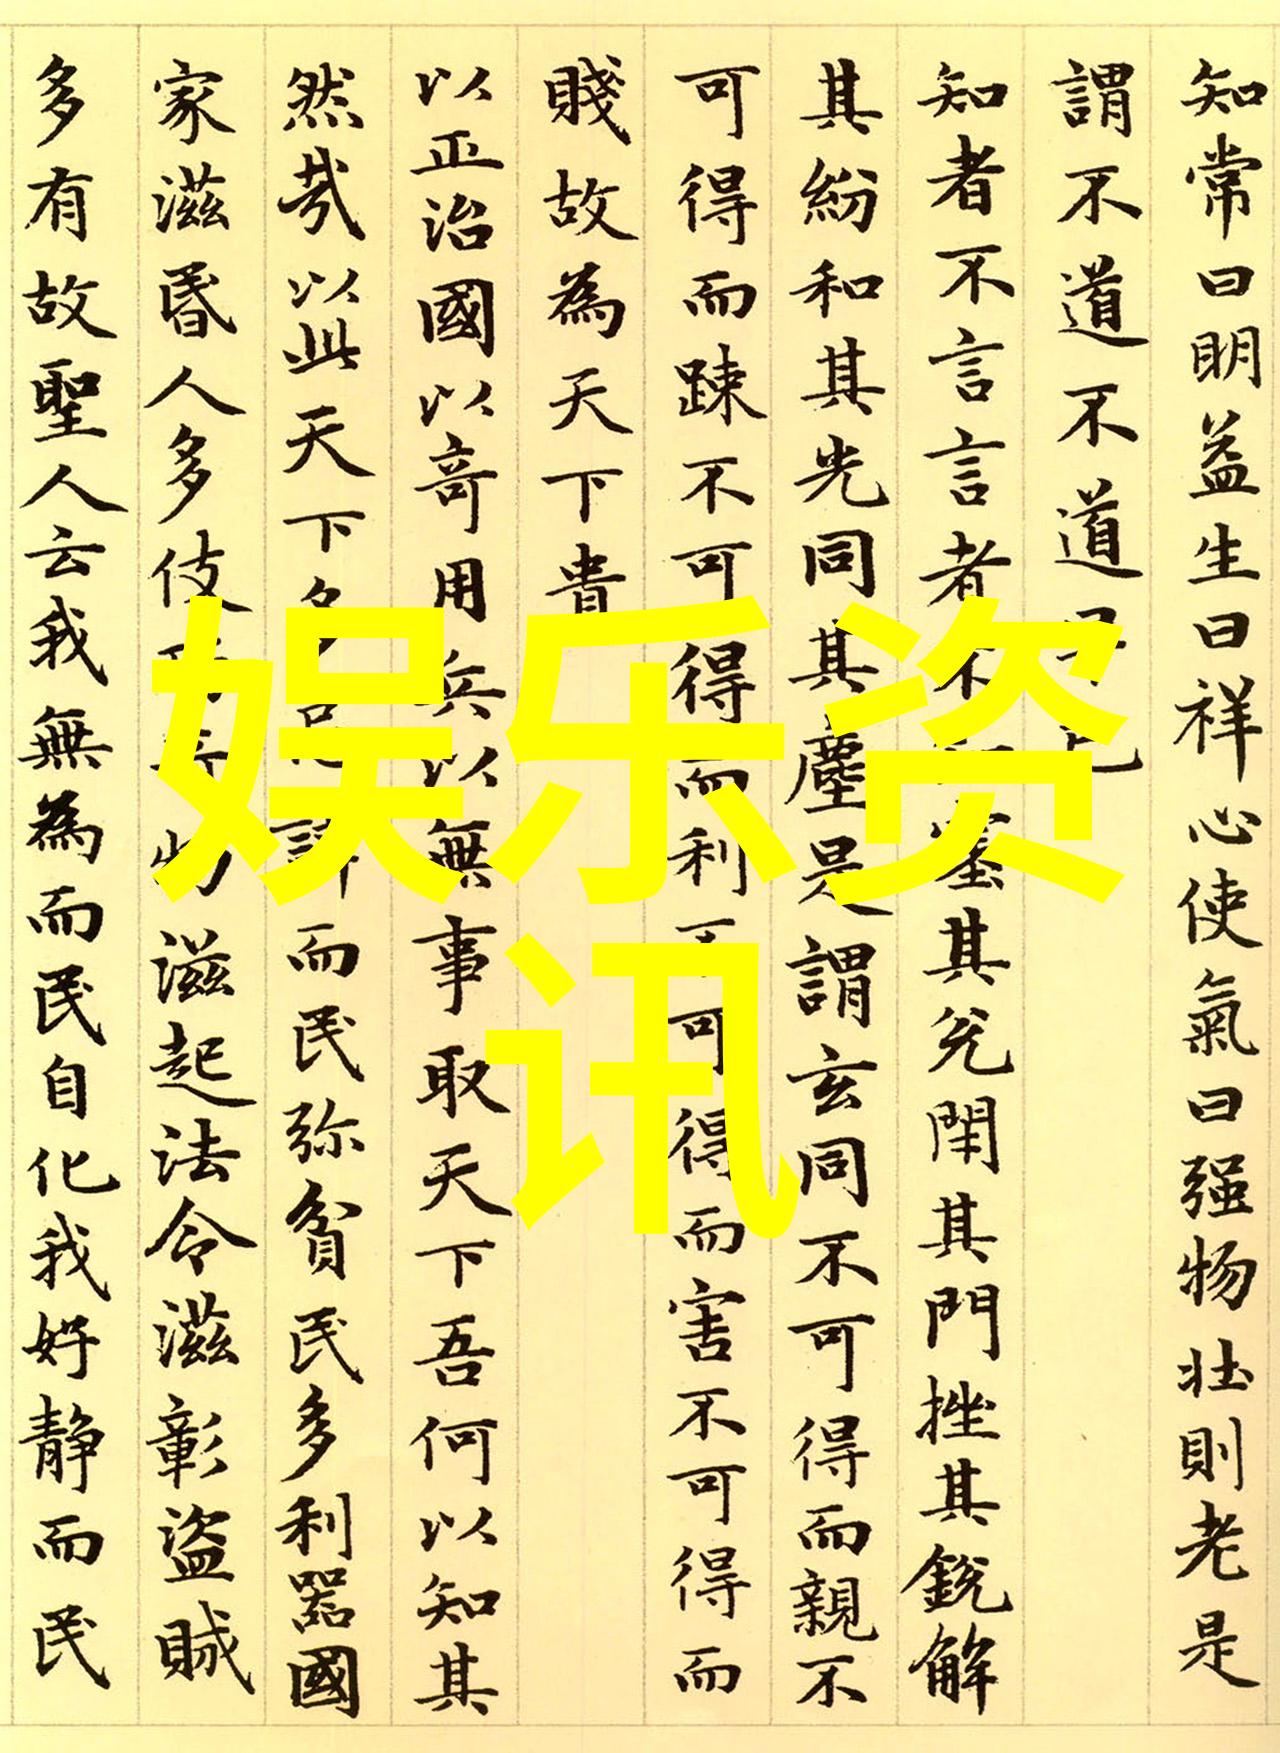 知常曰明益生曰祥心使氣曰强物壮則老是
謂不道不道早已
知者不言言者不知塞其兊閉其門挫其銳解
其紛和其光同其塵是謂玄同不可得而親不
可得而踈不可得而利不可得而害不可得而
賤故為天下貴
以正治國以奇用兵以無事取天下吾何以知其
然㢤以此天下多忌諱而民弥貧民多利器國
家滋昏人多伎巧奇物滋起法令滋彰盗賊
多有故聖人云我無為而民自化我好静而民
娱乐资
讯